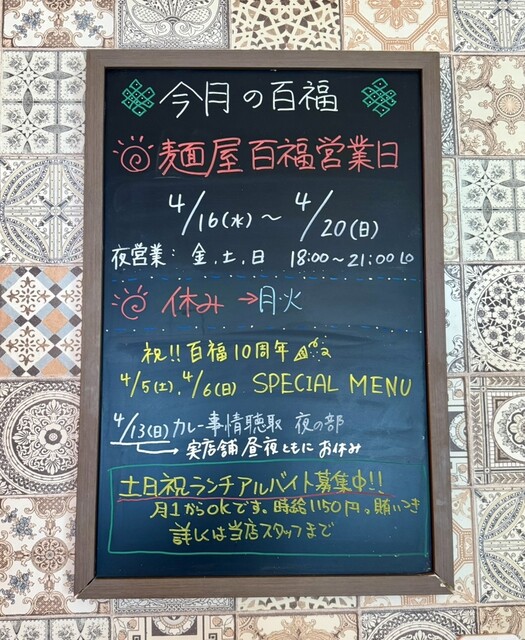 今月の百福
麺屋百福営業日
4/16(水)〜4/20(日)
夜営業: 金.土.日 18:00〜21:00 LO
休み→月火
祝!!百福10周年
4/5(土).4/6(日) SPECIAL MENU
4/13(日)カレー事情聴取 夜の部
→実店舗 昼夜ともに お休み
土日祝ランチアルバイト募集中!!
月1からokです。時給1150円。賄いつき
詳しくは当店スタッフまで